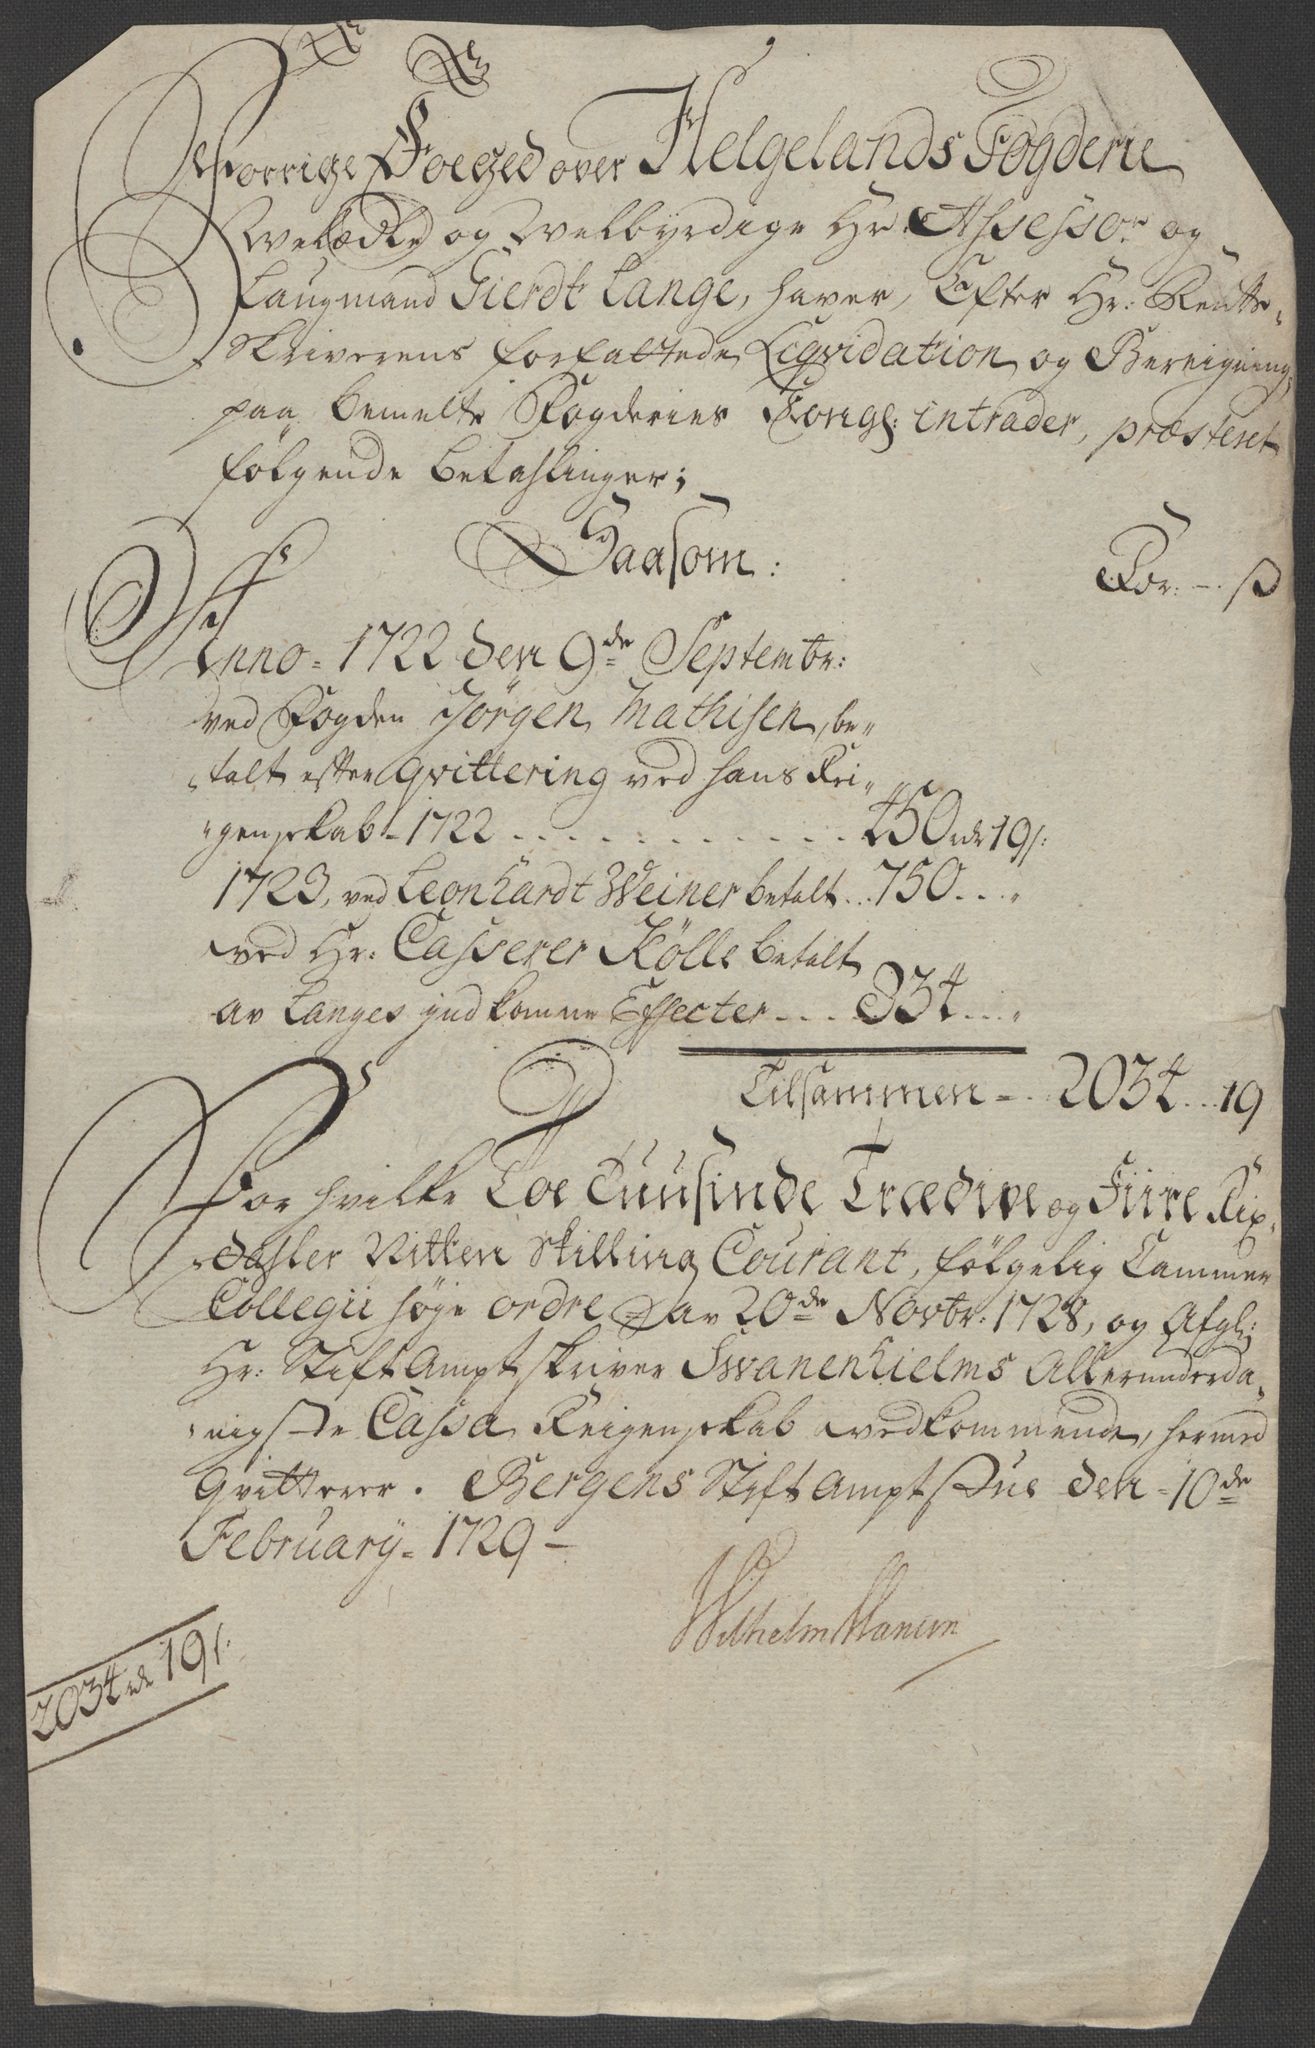 Forrige Foeged over Helgelands Fogderie
Welædle og Welbyrdige Hr: Assessor og
Laugmand Gierdt Lange, haver, Efter Hr: Rente-
Skriverens forfattede Liqvidation og Bereigning,
paa bemelte Fogderies Kongl: intrader, præsteret
følgende betahlinger;
Saasom:
Cor: - ß
Anno = 1722 den 9de Septembr:
ved Fogden Jørgen Mathisen, be-
talt efter qvittering ved hans Rei-
genskab - 1722 . . . . . . . . . 450 rdr 19 s:
1723, ved Leonhardt Weiner betalt . . 750 . . "
ved Hr: Casserer Kølle betalt
av Langes indkomne Effecter . . . 834 . . "
Tilsammen - . 2034 . . 19
For hvilke Toe Tuusinde Trædive og Fiire Rix-
dahler Nitten Skilling Courant, følgelig Cammer
Collegii høje ordre av 20de Novbr: 1728, og Afgl:
Hr: StiftAmptskriver Svanenhielms Allerunderda-
nigste Cassa Reigenskab vedkommende, hermed
Qvitterer. Bergens StiftAmptstue den = 10de
February = 1729 -
Wilhelm Hansen
2034 rdr 19 s: